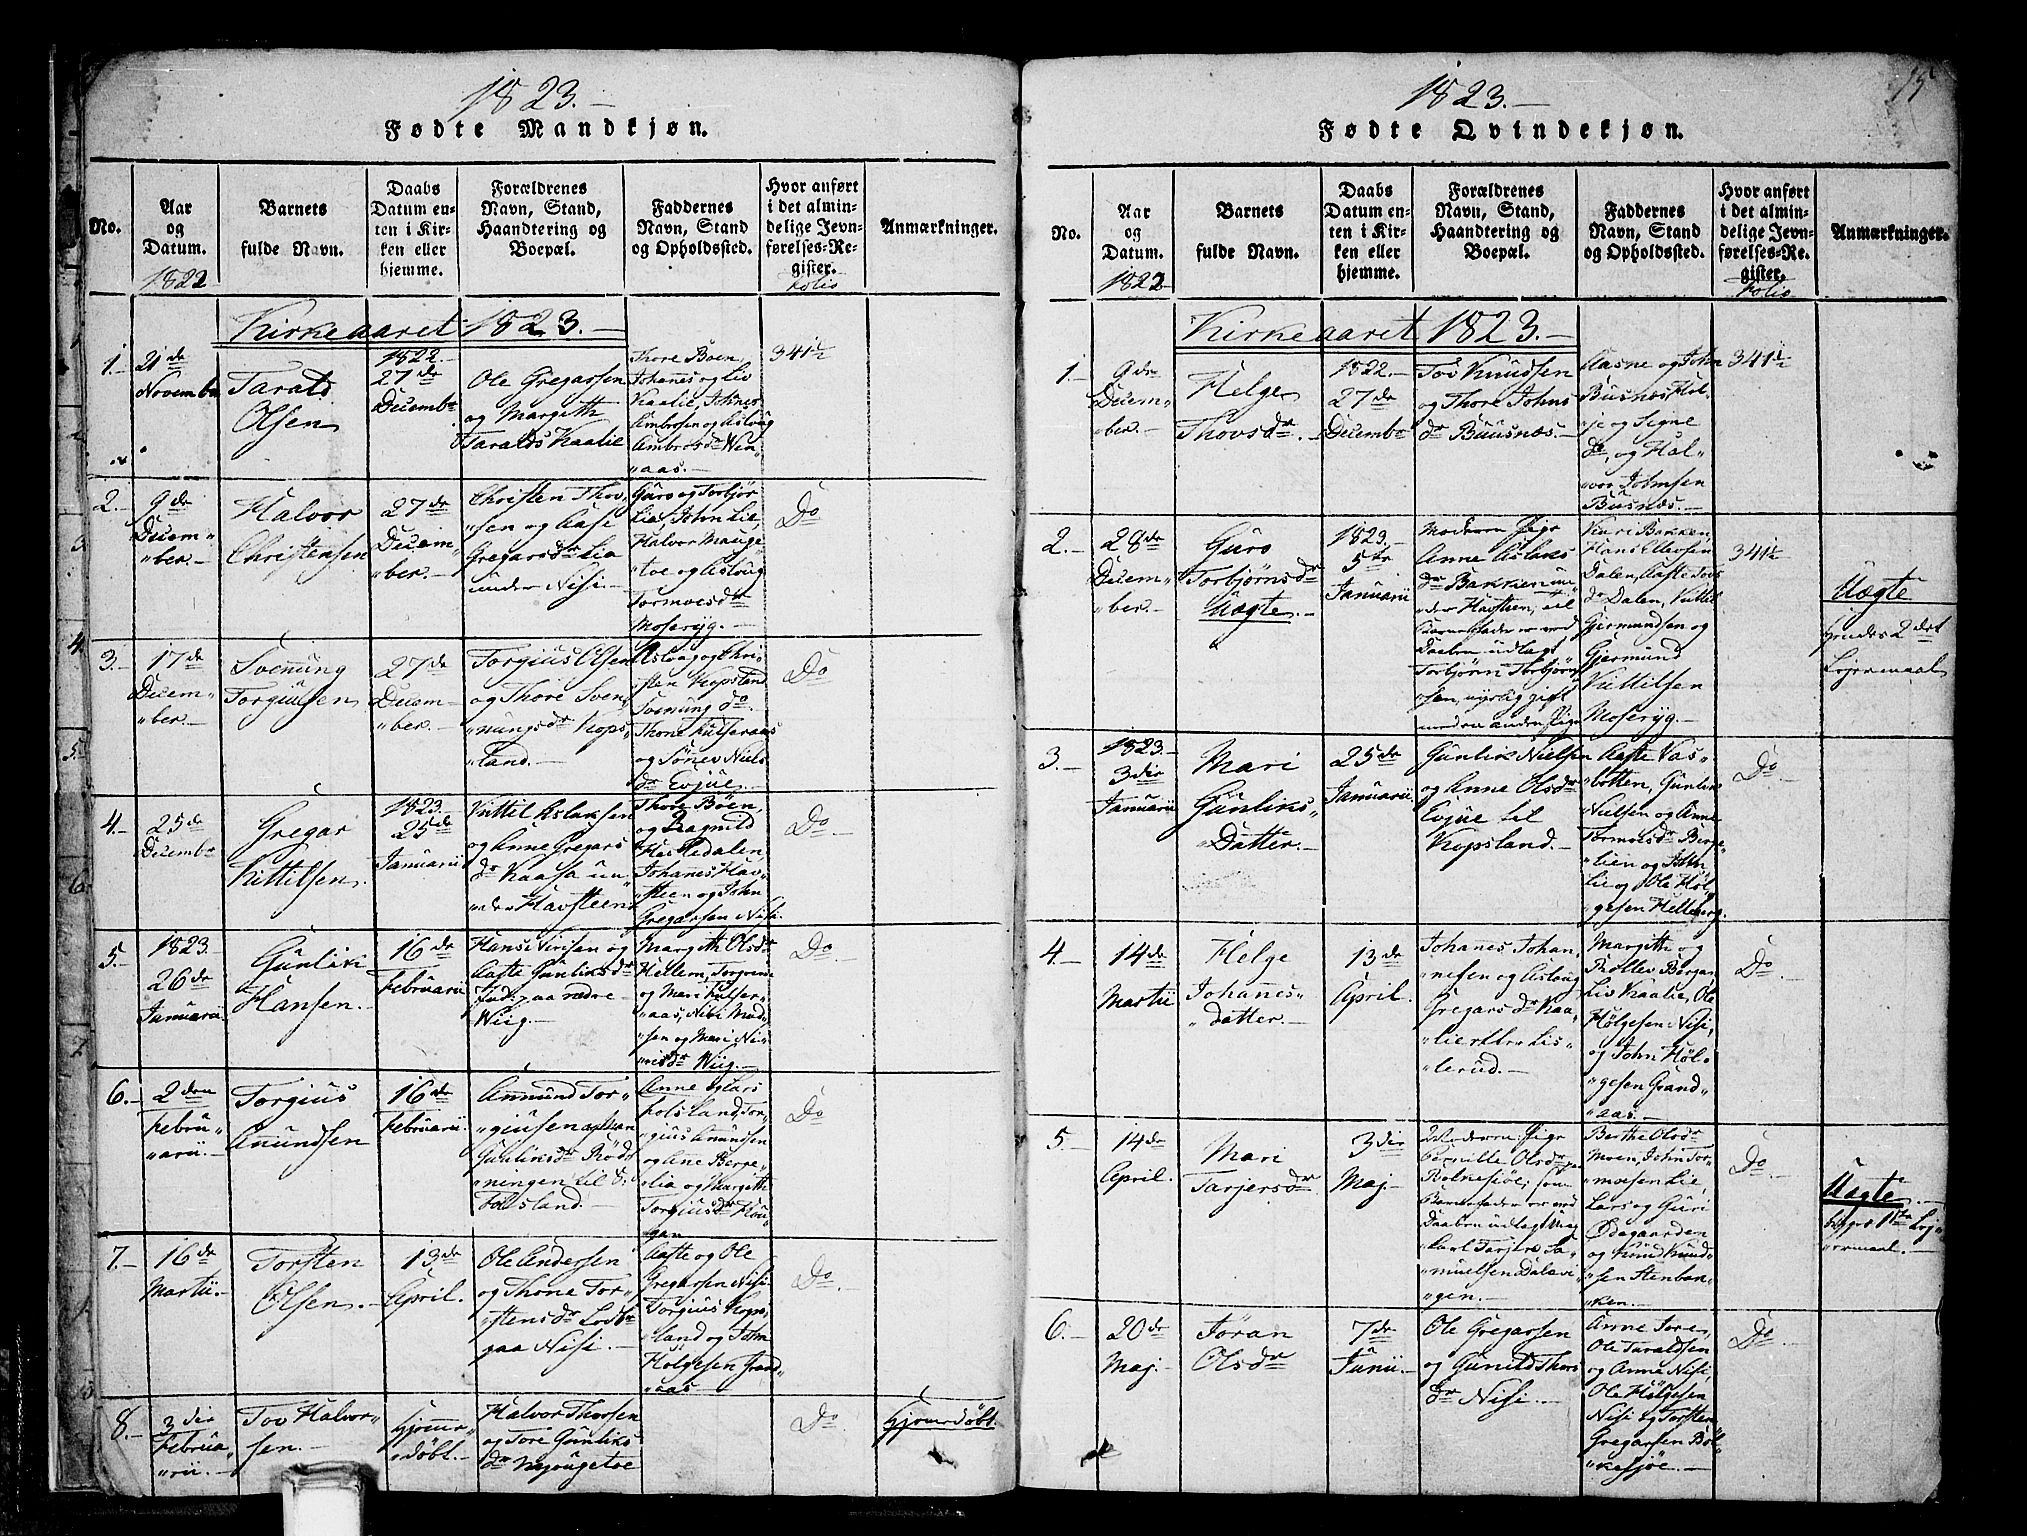 1823.
Fødte Mandkjøn.
No.
Aar
og
Datum.
1822
Barnets
fulde Navn.
Daabs
Datum en-
ten i Kir-
ken eller
hjemme.
Forældrenes
Navn, Stand,
Haandtering og
Boepæl.
Faddernes
Navn, Stand
og Opholdssted.
Hvor anført
i det almin-
delige Jevn-
førelses-Re-
gister.
Folio
Anmærkninger.
Kirkeaaret 1823.
1.
21de
Novembr
Tarald
Olsen
1822.
27de
Decembr
Ole Gregarsen
og Margith
Taralds Kaalie
Thore Boen,
Johannes og Liv
Kaalie, Johnes
Ambrosen og Aslaug
Ambrosdr
aas.
341
2.
9de
Decem"
"ber.
Halvor
Christensen
27de
Decem"
"ber.
Christen Thov"
"sen og Aase
Gregarsdr Lia
under Nisi.
Guro og Torbjør
Lia, John Lie,
Halvor Mauge"
"toe og Aslaug
Tormoesdr
Moserÿg.
Do
3.
17de
Decem"
"ber.
Svenung
Torgiusen
27de
Decem"
"ber.
Torgius Olsen
og Thore Sven"
"nungsdr Kops"
"land.
Aslaug og Chri"
"sten Kopsland
Svenung do.
Thone
og Niels
dr Evjue.
Do
4.
25de
Decembr
Gregar
Kittilsen.
1823.
25de
Januarii
Kittil Aslaksen
og Anne Gregars
dr Kaasa un"
"der Havsteen
Thore Böen,
og Ragnild
Hasledalen,
Johannes Hav"
"steen og John
Gregarsen Nisi.
Do.
5.
1823.
26de
Januarii.
Gunlik
Hansen.
16de
Februarii
Hans Nirisen og
Aaste Gunliksdr
Ind: paa nedre
Wiig.
Margith Olsdr
Hellem, Torgrim
og Mari
"aas, Niri Mad"
"sen og Mari Ni"
"risdr Wiig.
Do.
6.
2den
Febru"
"arii.
Torgius
Amundsen
16de
Februarii.
Amund Tor"
"giusen og
Gunliksdr Röd"
"ningen til
Folsland.
Anne og Lars
Folsland, Tor"
"gius Amundsen
og Anne Berge"
"lia og Margith
Torgiusdr Hou"
"gan
Do
7.
16de
Martii.
Torsten
Olsen.
13de
April.
Ole Andersen
og Thone Tor"
"stensdr
paa Nisi.
Aaste og Ole
Gregarsen Nisi
Torgius Kops"
"land og John
Holgesen Grand"
"aas
Do.
8.
3die
Februa"
"rii.
Tov Halvor"
sen.
Hjemme"
"döbt.
Halvor Thorsen
og Tore Gunliks
dr Mjougetoe
Do
Hjemedöbt.
1823.
15
Fødte Qvindekjøn.
No.
Aar
og
Datum.
1822
Barnets
fulde Navn.
Daabs
Datum en-
ten i Kir-
ken eller
hjemme.
Forældrenes
Navn, Stand,
Haandtering og
Boepæl.
Faddernes
Navn, Stand
og Opholdssted.
Hvor anført
i det almin-
delige Jevn-
førelses-Re-
gister.
Folio
Anmærkninger.
Kirkeaaret 1823.
1.
9de
Decem"
"ber.
Helge
Thovsdr.
1822.
27de
Decembr
Tov Knudsen
og Thore Johns
dr Buusnæs.
Aasne og John
Busnæs, Hol"
je og Signe
do, og Hal"
"vor Johnsen
Busnæs.
341
2.
28de
Decem"
"ber.
Guro
Torbjørnsdr
Uægte.
1823.
5te
Januarii
Moderen Pige
Anne Aslaks
dr Bakken un"
"der Havsteen, til
Barnefader er ved
Daaben udlagt
Torbjørn Torbjørn"
"sen, nyelig gift
med en anden Pige
Kari Bakken,
Hans Ellevsen
Dalen, Aaste Tovs
dr Dalen, Kittil
Gjermundsen og
Gjermund
Kittilsen
Moserÿg.
341
Uægte
2det
Lejermaal
3.
1823.
3die
Januarii
Mari
Gunliks"
"Datter.
25de
Januarii.
Gunlik Nielsen
og Anne Olsdr
Evjue til
Kopsland.
Aaste Vas"
"botten, Gunlik
Nielsen og Anne
Tormoesdr Berge"
"lien og John
Lie og Ole Höl"
"gesen Helleberg.
Do
4.
14de
Martii
Helge
Johannes"
"datter.
13de
April.
Johanes Johan"
"nesen og Aslaug
Gregarsdr Kaa"
"lie
"lerud.
Margith og
Thollev Bergan
Liv Kaalie, Ole
Hölgesen Nisi,
og John Höl"
"gesen Grand"
"aas.
Do.
5.
14de
April.
Mari
Tarjersdr
3die
Maj.
Moderen: Pige
Pernille Olsdr
Bolkesjöe, som
Barnefader er ved
Daaben udlagt Ung"
"karl Tarjer Sa"
"muelsen Dalavi"
"gen.
Berthe Olsdr
Moen, John Tor"
"moesen Lie,
Lars og Guri
Ödegaarden
og Knud Knud"
"sen Stenbak"
"ken.
Do.
Uægte.
begges 1ste Lej"
"ermaal.
6.
20de
Maj.
Jöran
Olsdr
7de
Junii.
Ole Gregarsen
og Gunild Thors
dr Nisi.
Anne Tore,
Ole Taraldsen
og Anne Nisi,
Ole Hölgesen
Nisi og Torsten
Gregarsen Böl"
"kesjöe.
Do.